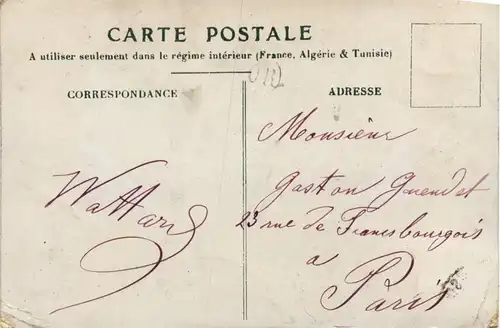 CARTE POSTALE
A utiliser seulement dans le régime intérieur (France, Algérie & Tunisie)
CORRESPONDANCE
ADRESSE
Monsieur
Gaston Guendet
23 rue de Francs bourgois
a
Paris